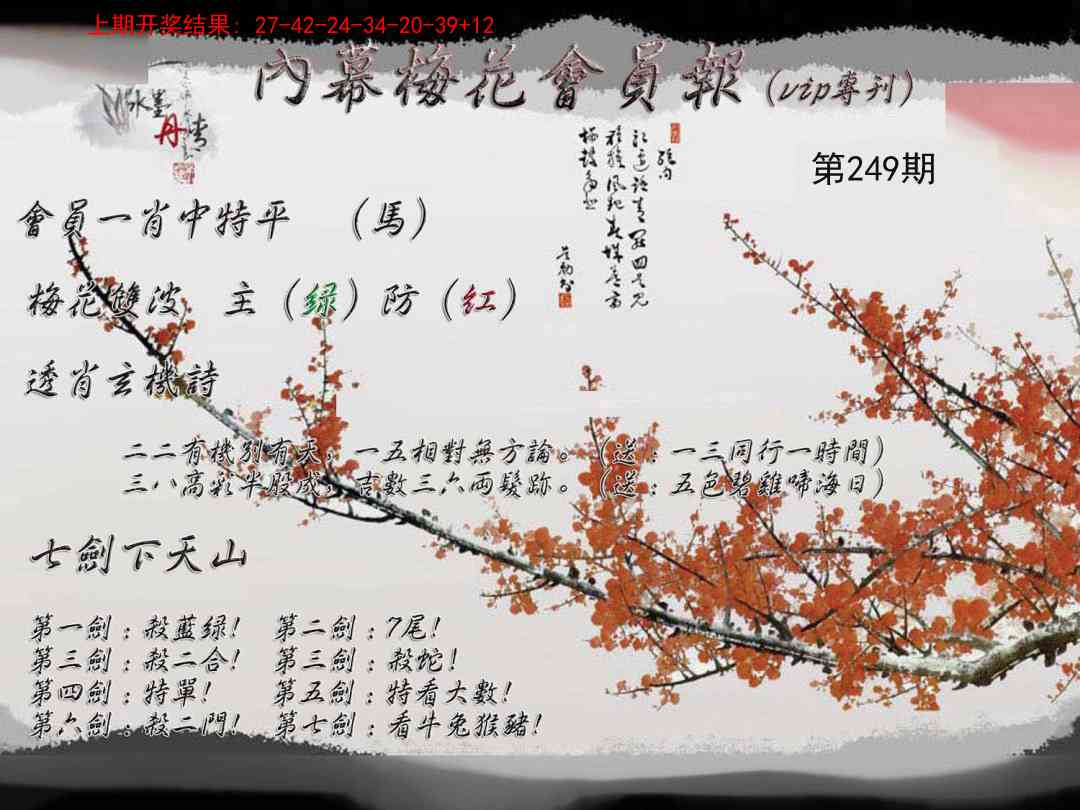 上期开奖结果：27-42-24-34-20-39+12
內幕梅花會員報（vip專刊）
水墨
丹青
第249期
會員一肖中特平　（馬）
梅花雙波　主（绿）防（红）
透肖玄機詩
二二有機別有天，一五相對無方論。（送：一三同行一時間）
三八高彩半股成，吉數三六兩鬢跡。（送：五色碧雞啼海日）
七劍下天山
第一劍：殺藍绿！　第二劍：7尾！
第三劍：殺二合！　第三劍：殺蛇！
第四劍：特單！　第五劍：特看大數！
第六劍：殺二門！　第七劍：看牛兔猴豬！